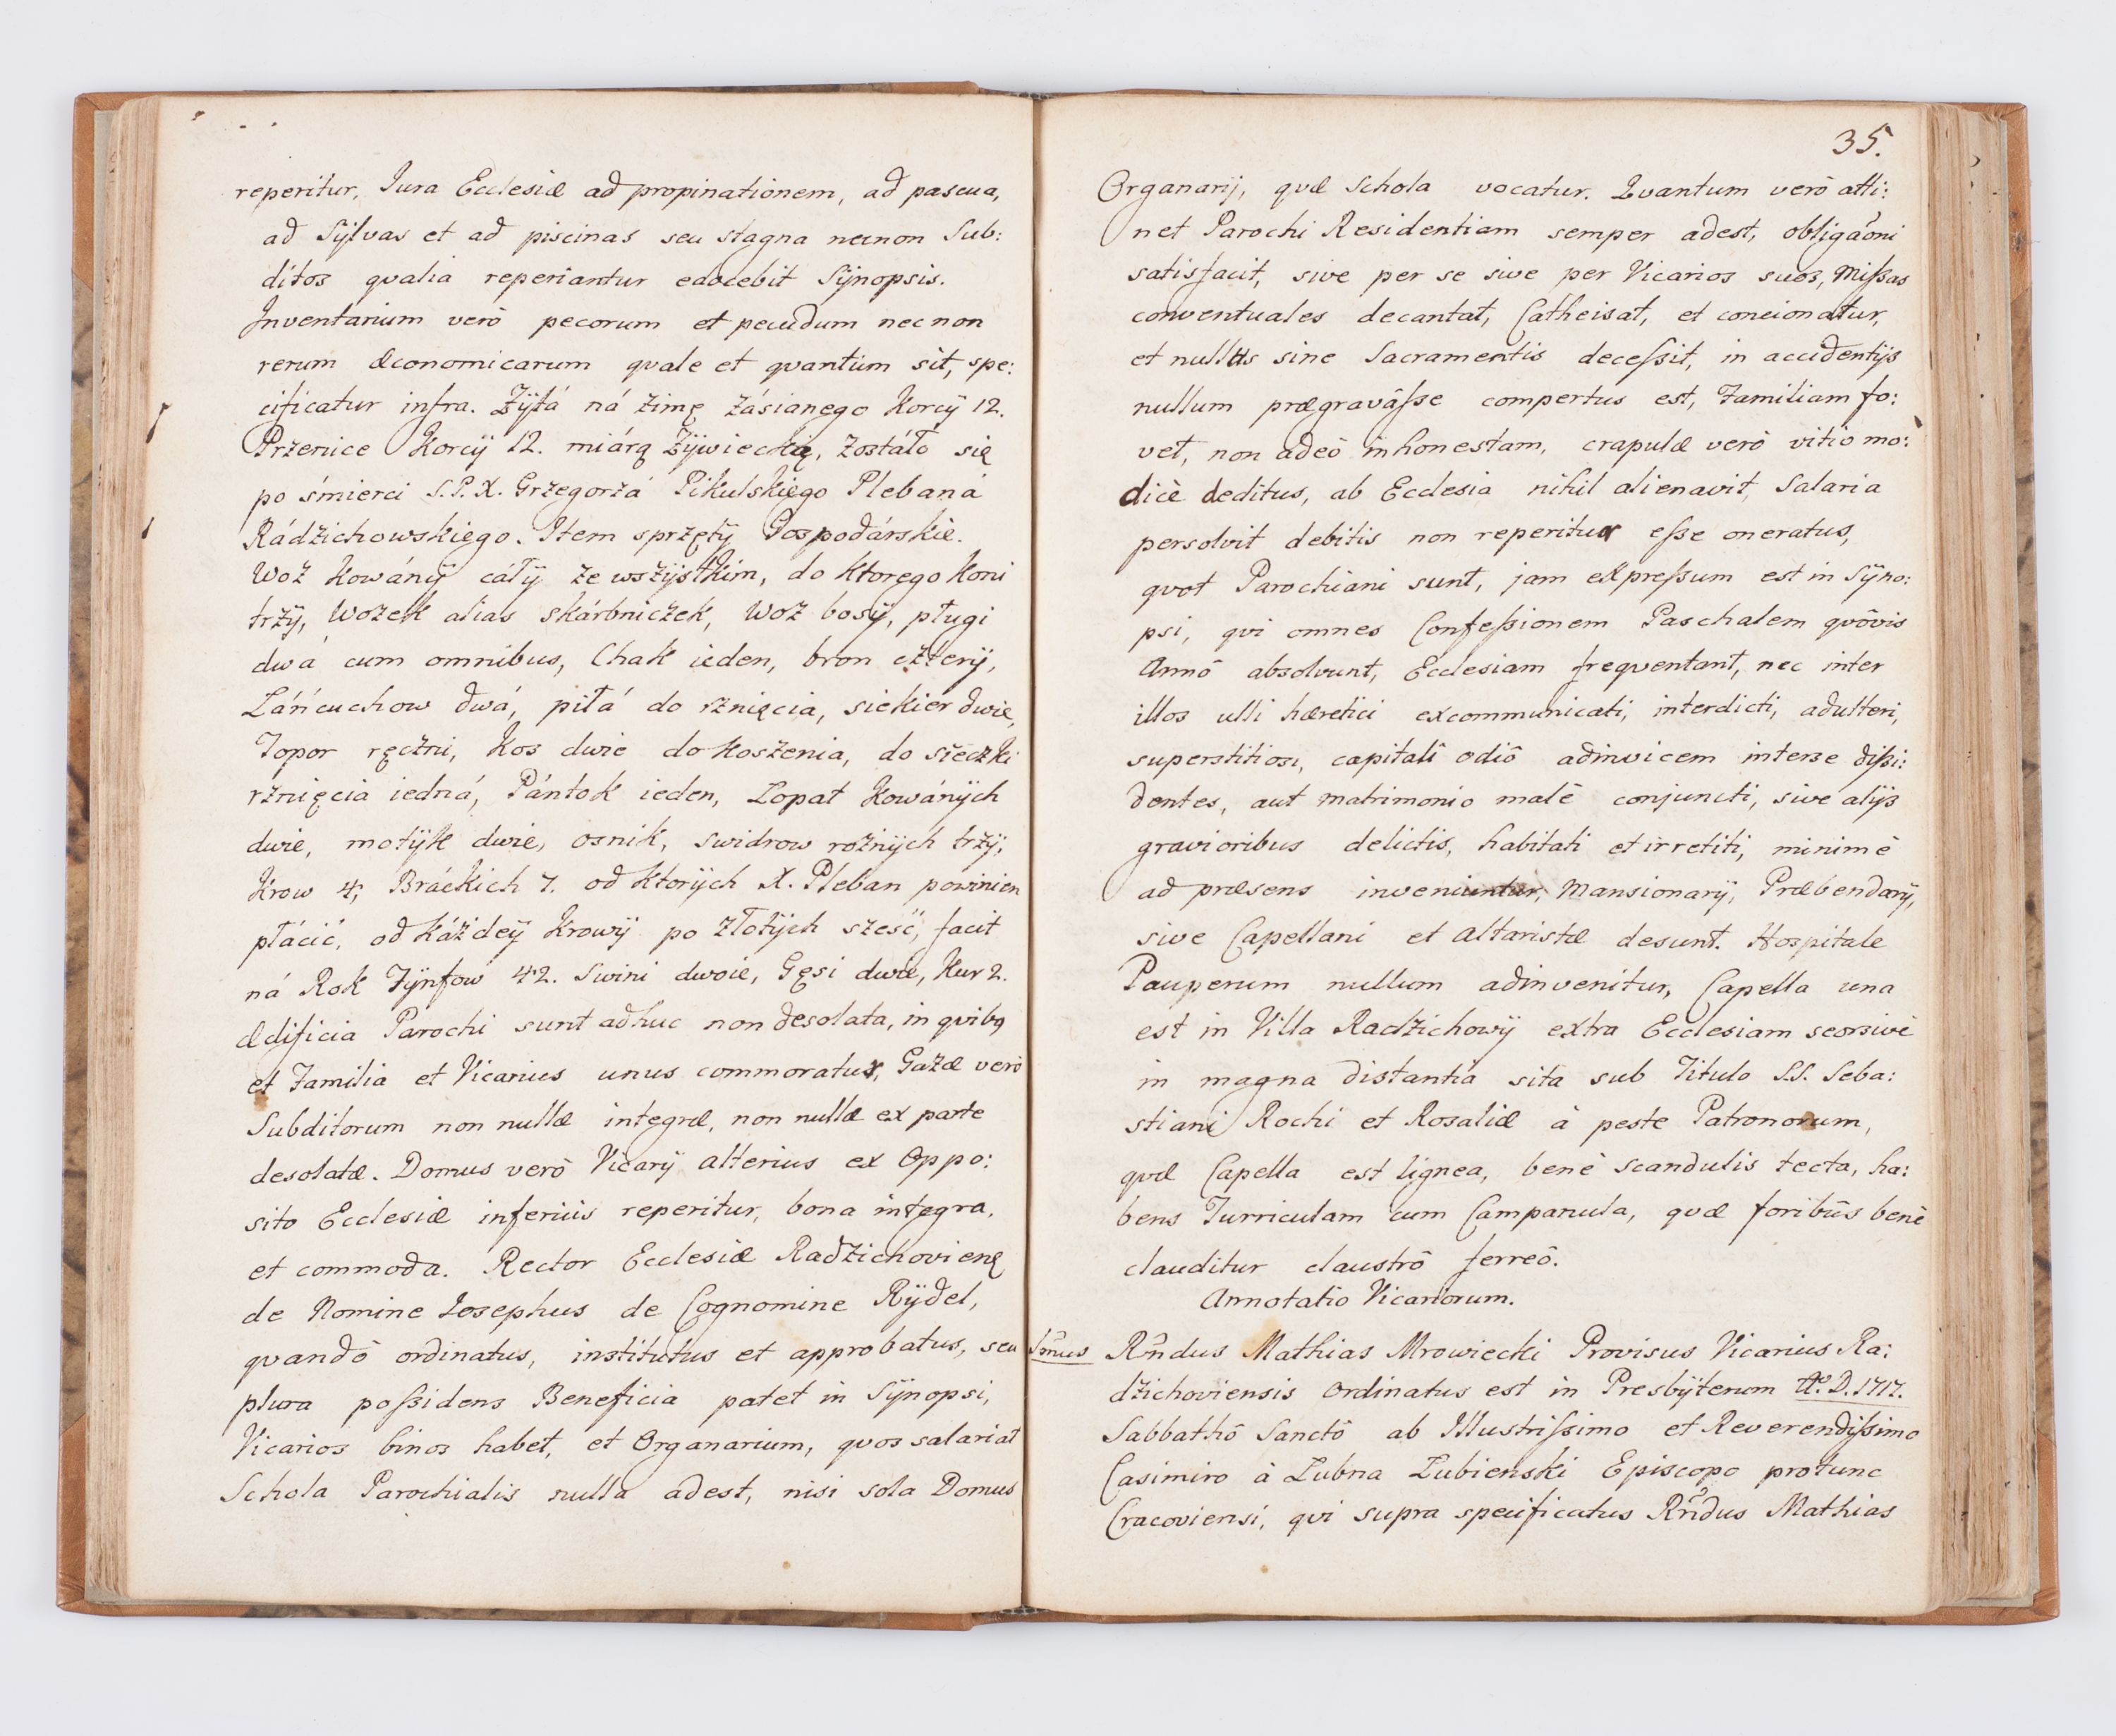 reperitur, Jura Ecclesiæ ad propinationem, ad pascua,
ad Sÿlvas et ad piscinas seu stagna necnon Sub:
ditos qvalia reperiantur edocebit Sÿnopsis.
Inventarium verò pecorum et pecudum nec non
rerum æconomicarum qvale et qvantum sit, spe:
cificatur infra. Żÿtá ná źimę zásianego Korcÿ 12.
Przenice Korcÿ 12. miárą Żÿwiecką, zostáło się
po śmierci S.P.X. Grzegorzá Pikulskiego Plebaná
Rádzichowskiego. Item sprzętÿ Gospodárskie.
Woz Kowánÿ cáłÿ ze wszÿstkim, do ktorego Koni
trzÿ, Wozek alias skárbniczek, Woz bosÿ, pługi
dwá cum omnibus, Chak ieden, bron czterÿ,
Láńcuchow dwá, piłá do rznięcia, siekier dwie,
Topor ręczni, Kos dwie do Koszenia, do sieczki
rznięcia iedná, Pántok ieden, Lopat Kowánÿch
dwie, motÿk dwie, osnik, swidrow roznÿch trzÿ,
Krow 4, Bráckich 7. od ktorÿch X. Pleban powinien
płácić, od Káżdeÿ Krowÿ po złotÿch sześć, facit
ná Rok Tÿnfow 42. Swini dwoie, Gęsi dwie, Kur 2.
Ædificia Parochi sunt adhuc non desolata, in qvibq
et Familia et Vicarius unus commoratur, Gazæ verò
Subditorum non nullæ integræ, non nullæ ex parte
desolatæ. Domus verò Vicarÿ alterius ex Oppo:
sito Ecclesiæ inferiùs reperitur, bona integra,
et commoda. Rector Ecclesiæ Radzichovienę
de Nomine Josephus de Cognomine Rÿdel,
qvandò ordinatus, institutus et approbatus, seu
plura possidens Beneficia patet in Sÿnopsi,
Vicarios binos habet, et Organarium, qvos salariat
Schola Parochialis nulla adest, nisi sola Domus
35.
Organarij, qvæ Schola vocatur. Qvantum verò atti:
net Parochi Residentiam semper adest, obligaõni
satisfacit, sive per se sive per Vicarios suos, Missas
conventuales decantat, Catheisat, et concionatur,
et nullus sine Sacramentis decessit, in accidentÿs
nullum prægravâsse compertus est, Familiam fo:
vet, non adeò inhonestam, crapulæ verò vitio mo:
dicè deditus, ab Ecclesia nihil alienavit, Salaria
persolvit debitis non reperitur esse oneratus,
qvot Parochiani sunt, jam expressum est in Sÿno:
psi, qvi omnes Confessionem Paschalem qvôvis
Annô absolvunt, Ecclesiam freqventant, nec inter
illos ulli hæretici excommunicati, interdicti, adulteri,
superstitiosi, capitali odiô adinvicem interse dissi:
dentes, aut matrimonio malè conjuncti, sive alÿs
gravioribus delictis, habitati et irretiti, minimè
ad præsens inveniuntur, Mansionarÿ, Præbendarÿ,
sive Capellani et Altaristæ desunt. Hospitale
Pauperum nullum adinvenitur, Capella una
est in Villa Radzichowÿ extra Ecclesiam seorsivè
in magna distantia sita sub Titulo S.S. Seba:
stiani Rochi et Rosaliæ à peste Patronorum,
qvæ Capella est lignea, benè scandulis tecta, ha:
bens Turriculam cum Campanula, qvæ foribûs benè
clauditur claustrô ferreô.
Annotatio Vicariorum.
Rñdus Mathias Mrowiecki Provisus Vicarius Ra:
dzichoviensis Ordinatus est in Presbÿterum Aº. D. 1717.
Sabbathô Sanctô ab Illustrissimo et Reverendissimo
Casimiro à Lubna Lubienski Episcopo protunc
Cracoviensi, qvi supra specificatus Rñdus Mathias